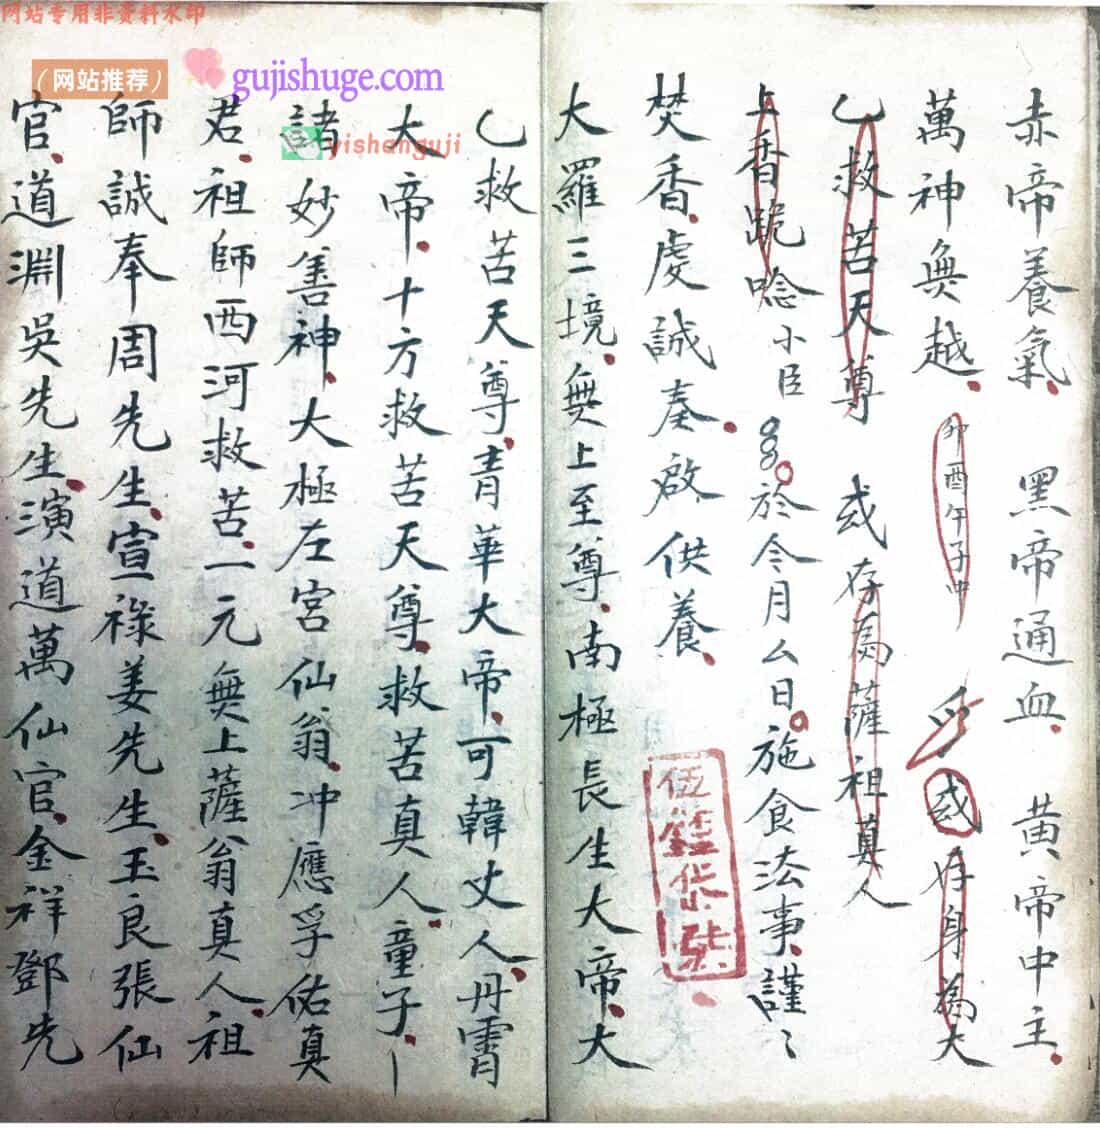 网站专用非资料水印
（网站推荐）
gujishuge.com
yishanguji
赤帝養氣、黑帝通血、黄帝中主、
萬神無越、卯酉午子中 或存身為大
乙救苦天尊 或存為薩祖真人
上香跪唸小臣 於今月厶日施食法事、謹〻
焚香、虔誠奏啟、供養、
大羅三境、無上至尊、南極長生大帝、大
乙救苦天尊、青華大帝、可韓丈人、丹霄
大帝、十方救苦天尊、救苦真人、童子、一
諸妙善神、大極左宮仙翁、冲應孚佑真
君、祖師西河救苦、一元無上薩翁真人、祖
師誠奉周先生、宣禄姜先生、玉良張仙
官、道淵吳先生、演道萬仙官、金祥鄧先